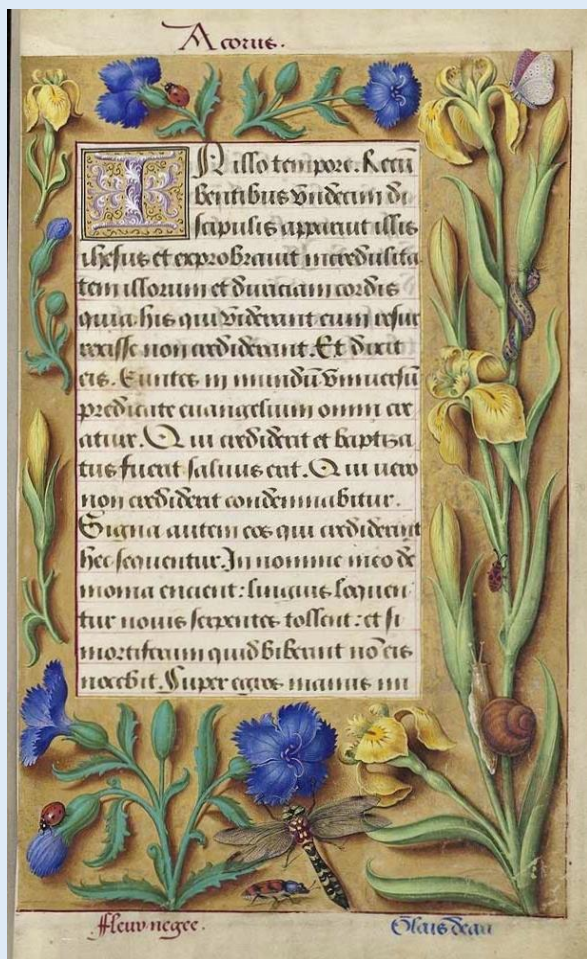 Acorus.
IN illo tempore. Recū
bentibus vndecim di
scipulis apparuit illis
ihesus et exprobrauit incredulita
tem illorum et duriciam cordis
quia his qui viderant eum resur
rexisse non crediderant. Et dixit
eis. Euntes in mundū vniuersū
predicate euangelium omni cre
ature. Qui crediderit et baptisa
tus fuerit saluus erit. Qui uero
non crediderit condemnabitur.
Signa autem eos qui crediderint
hec sequentur. In nomine meo de
monia eicient: linguis loquen
tur nouis serpentes tollent: et si
mortiferum quid biberint nō eis
nocebit. Super egros manus im
ffleur negee.
Glais deau